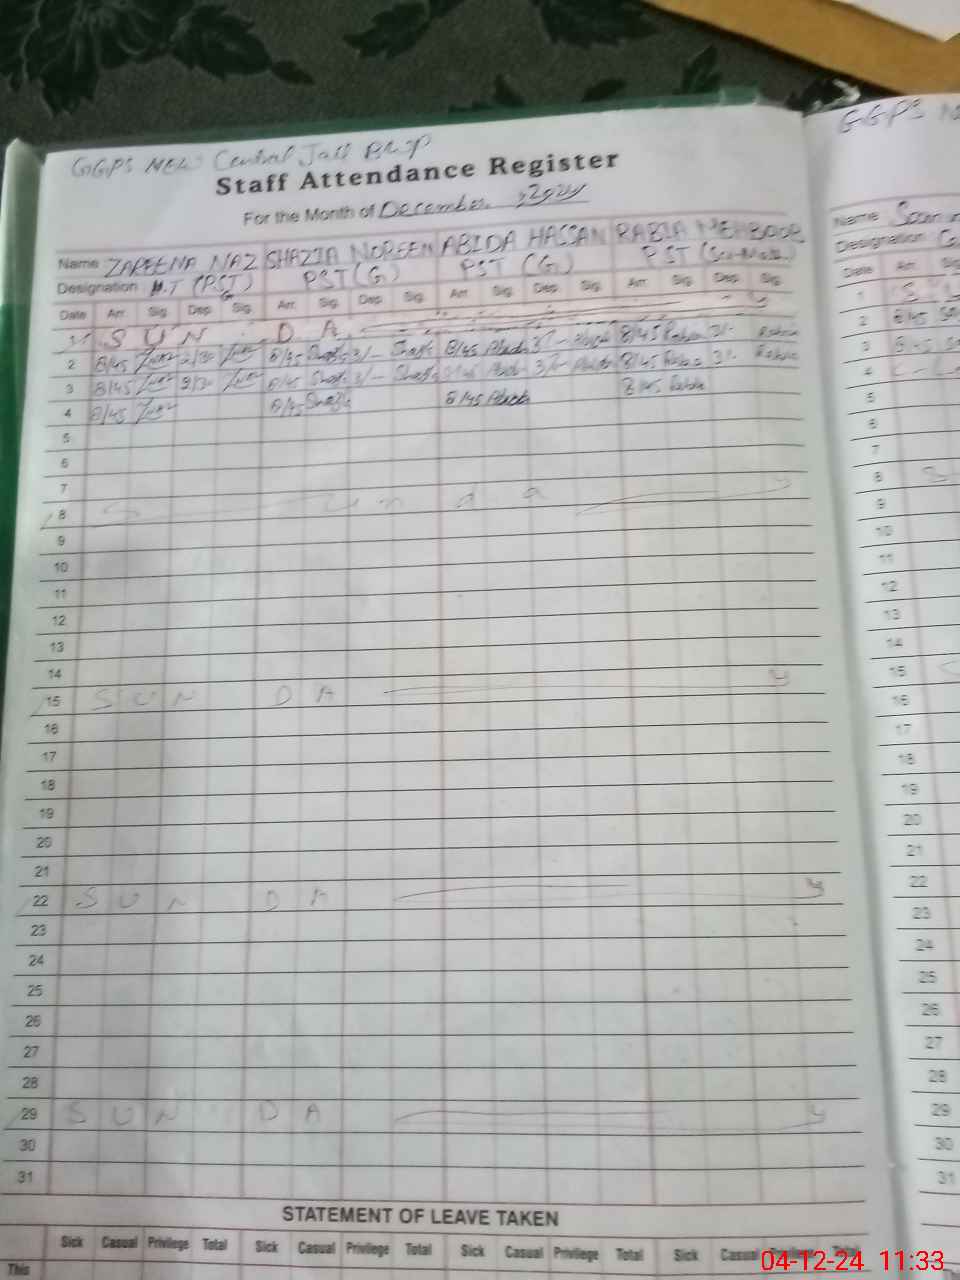 GGPS NEW Central Jail BWP
Staff Attendance Register
For the Month of December 2024
Name ZAREENA NAZ SHAZIA NOREEN ABIDA HASSAN RABIA MEHBOOB
Designation H.T (PST) PST (G) PST (G) PST (Sci-Math.)
Date Arr. Sig. Dep. Sig. Arr. Sig. Dep. Sig. Arr. Sig. Dep. Sig. Arr. Sig. Dep. Sig.
1 S U N D A y
2 8/45 8/45 3/- 8/45 Abida 3/- Abida 8/45 Rabia 3/- Rabia
3 8/45 3/30 8/45 3/- 8/45 Abida 3/- Abida 8/45 Rabia 3/- Rabia
4 8/45 8/45 8/45 Abida 8/45 Rabia
5
6
7
8 S u n d a y
9
10
11
12
13
14
15 S U N D A y
16
17
18
19
20
21
22 S U N D A y
23
24
25
26
27
28
29 S U N D A y
30
31
STATEMENT OF LEAVE TAKEN
Sick Casual Privilege Total Sick Casual Privilege Total Sick Casual Privilege Total Sick Casual Privilege Total
This
GGPS
Name
Designation
Date Arr. Sig.
1 S
2 8/45
3 8/45
4
5
6
7
8 S
9
10
11
12
13
14
15
16
17
18
19
20
21
22
23
24
25
26
27
28
29
30
31
04-12-24 11:33